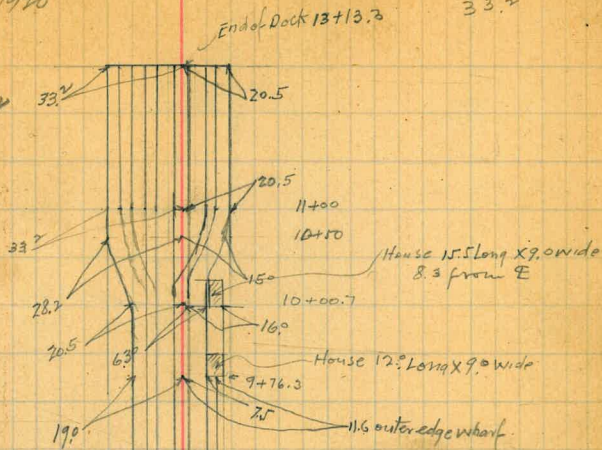 1920
33.2
End of Dock 13+13.3
33.2
20.5
20.5
11+00
33.2
10+50
House 15.5 Long X 9.0 wide
8.3 from ℄
15.0
28.2
10+00.7
16.0
20.5
6.3
House 12.0 Long X 9.0 wide
9+76.3
7.5
19.0
11.6 outer edge wharf